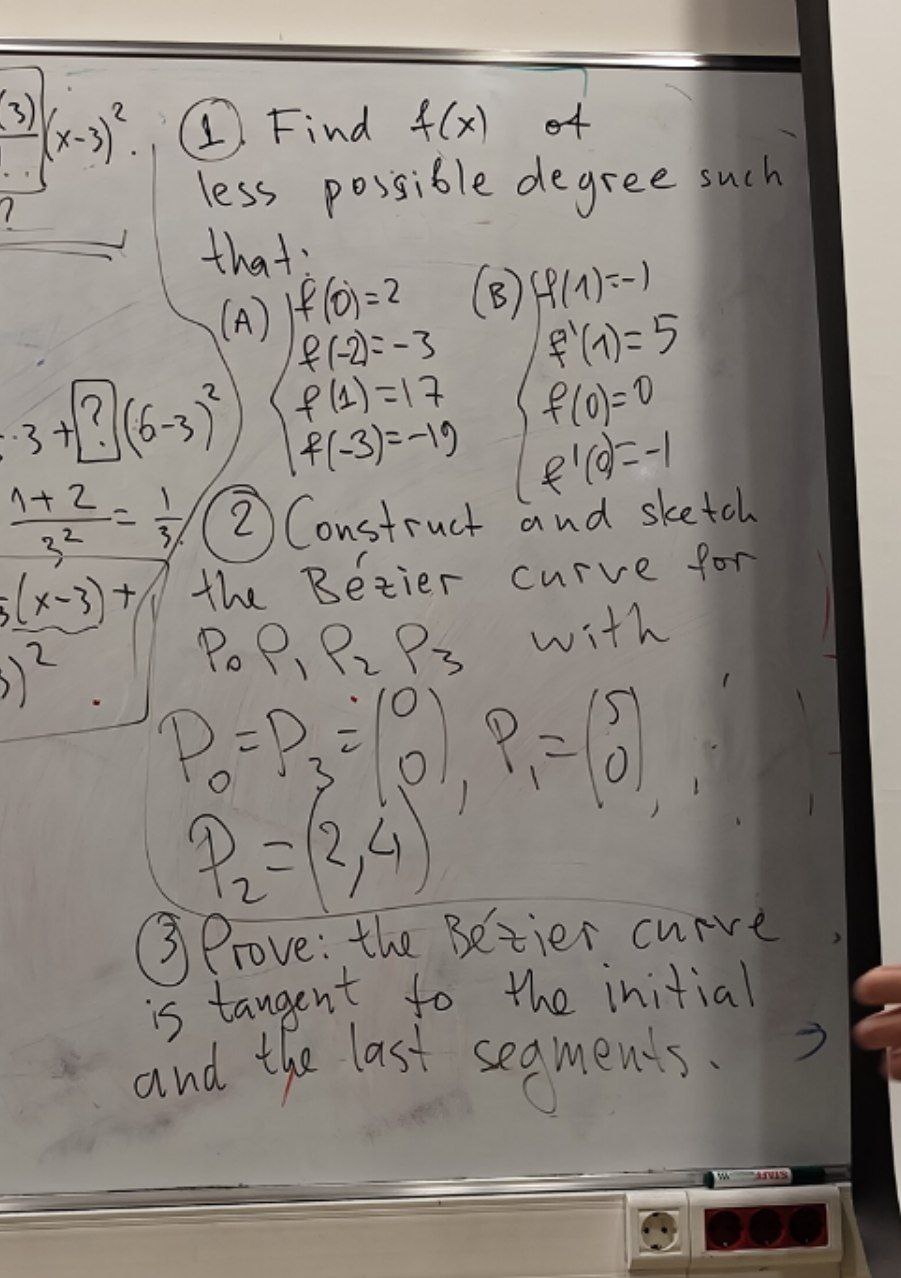 (3)
(x-3)².
?
..3 + ? (6-3)²
1+2 / 3² = 1/3.
(x-3) +
)²
① Find f(x) of
less possible degree such
that:
(A) f(0)=2
f(-2)=-3
f(1)=17
f(-3)=-19
(B) f(1)=-1
f'(1)=5
f(0)=0
f'(0)=-1
② Construct and sketch
the Bézier curve for
P₀ P₁ P₂ P₃ with
P₀=P₃=(0 0), P₁=(5 0),
P₂=(2,4)
③ Prove: the Bézier curve
is tangent to the initial
and the last segments.
STAFF